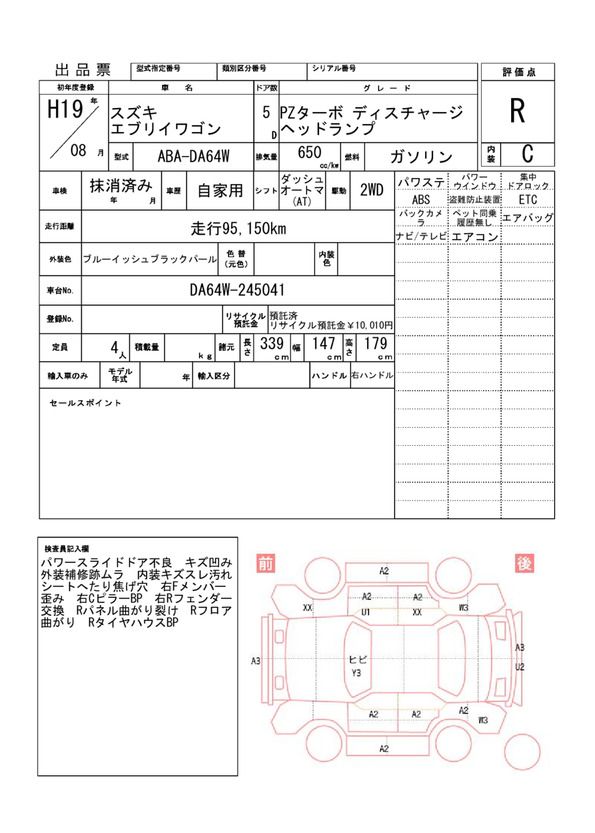 出品票 型式指定番号 類別区分番号 シリアル番号 評価点
初年度登録 車名 ドア数 グレード
H19年 スズキ 5 PZターボ ディスチャージ R
エブリイワゴン D ヘッドランプ
08月 型式 ABA-DA64W 排気量 650 cc/kw 燃料 ガソリン 内装 C
車検 抹消済み 年 月 車歴 自家用 シフト ダッシュオートマ(AT) 駆動 2WD
パワステ パワーウインドウ 集中ドアロック
ABS 盗難防止装置 ETC
バックカメラ ペット同乗履歴無し エアバッグ
ナビ/テレビ エアコン
走行距離 走行95,150km
外装色 ブルーイッシュブラックパール 色替(元色) 内装色
車台No. DA64W-245041
登録No. リサイクル預託金 預託済
リサイクル預託金¥10,010円
定員 4人 積載量 kg 諸元 長さ 339cm 幅 147cm 高さ 179cm
輸入車のみ モデル年式 年 輸入区分 ハンドル 右ハンドル
セールスポイント
検査員記入欄
パワースライドドア不良 キズ凹み
外装補修跡ムラ 内装キズスレ汚れ
シートへたり焦げ穴 右Fメンバー
歪み 右CピラーBP 右Rフェンダー
交換 Rパネル曲がり裂け Rフロア
曲がり RタイヤハウスBP
前 後
A2
A2 A2
XX U1 XX W3
A3 ヒビ A3
Y3 U2
A2 A2 A2 W3
A2